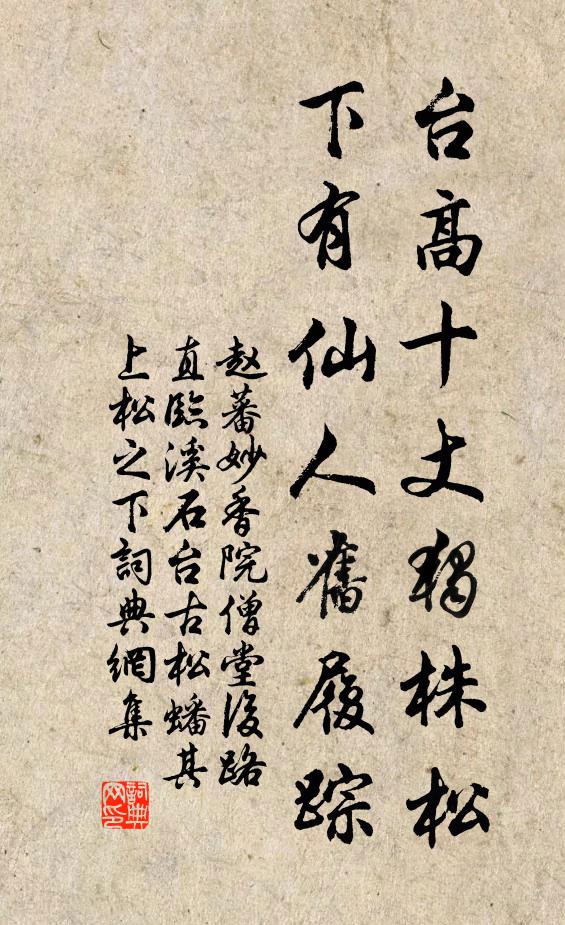 台高十丈獨株松
下有仙人舊履踪
赵蕃妙香院僧堂後路
直臨溪石台古松蟠其
上松之下詞典網集
詞典
网印